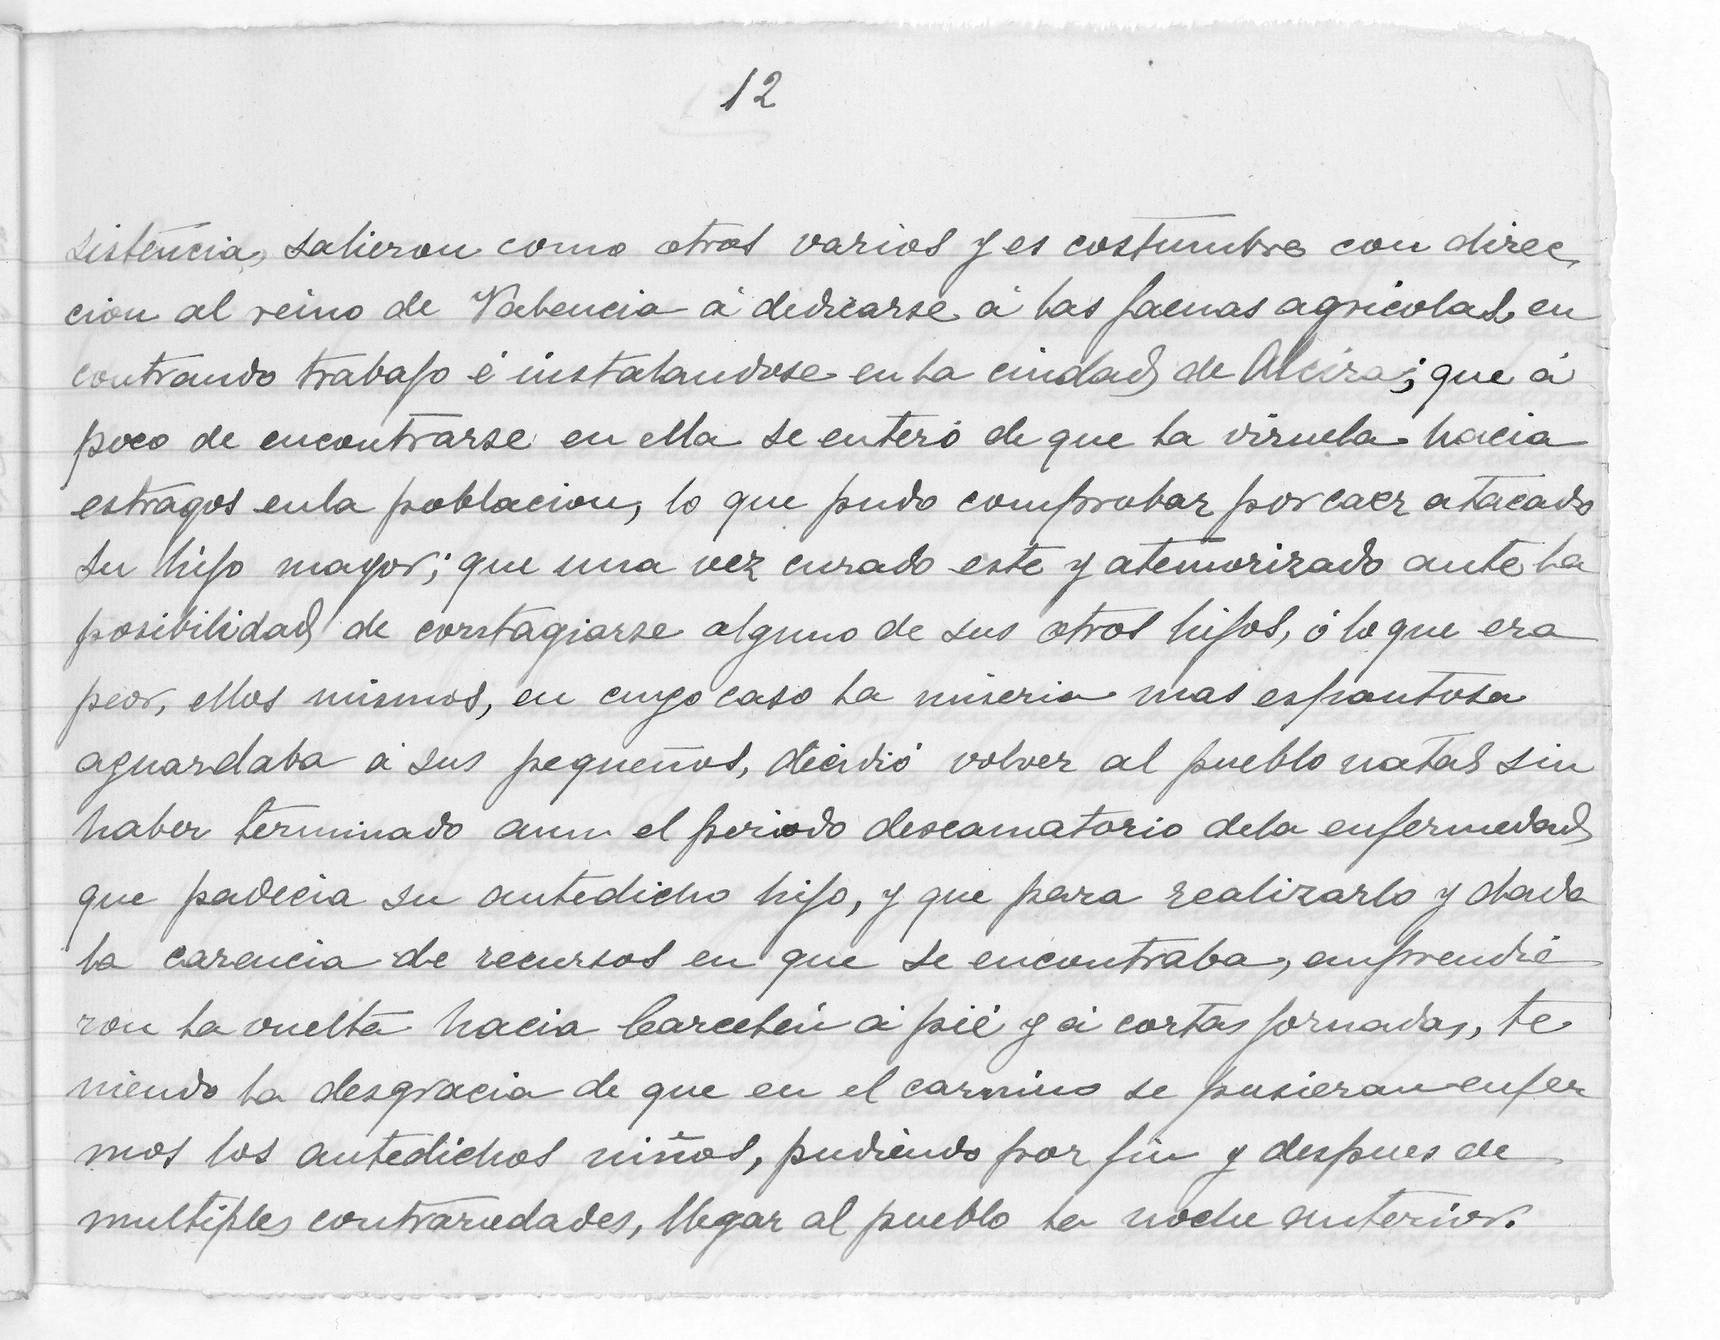 12
sistencia, salieron como otros varios y es costumbre con direc
cion al reino de Valencia á dedicarse á las faenas agricolas, en
contrando trabajo é instalandose en la ciudad de Alcira; que á
poco de encontrarse en ella se enteró de que la viruela hacia
estragos en la poblacion, lo que pudo comprobar por caer atacado
su hijo mayor; que una vez curado este y atemorizado ante la
posibilidad de contagiarse alguno de sus otros hijos, ó lo que era
peor, ellos mismos, en cuyo caso la miseria mas espantosa
aguardaba á sus pequeños, decidió volver al pueblo natal sin
haber terminado aun el periodo descamatorio de la enfermedad
que padecia su antedicho hijo, y que para realizarlo y dada
la carencia de recursos en que se encontraba, emprendie
ron la vuelta hacia Carcelén á pié y á cortas jornadas, te
niendo la desgracia de que en el camino se pusieran enfer
mos los antedichos niños, pudiendo por fin y despues de
multiples contrariedades, llegar al pueblo la noche anterior.